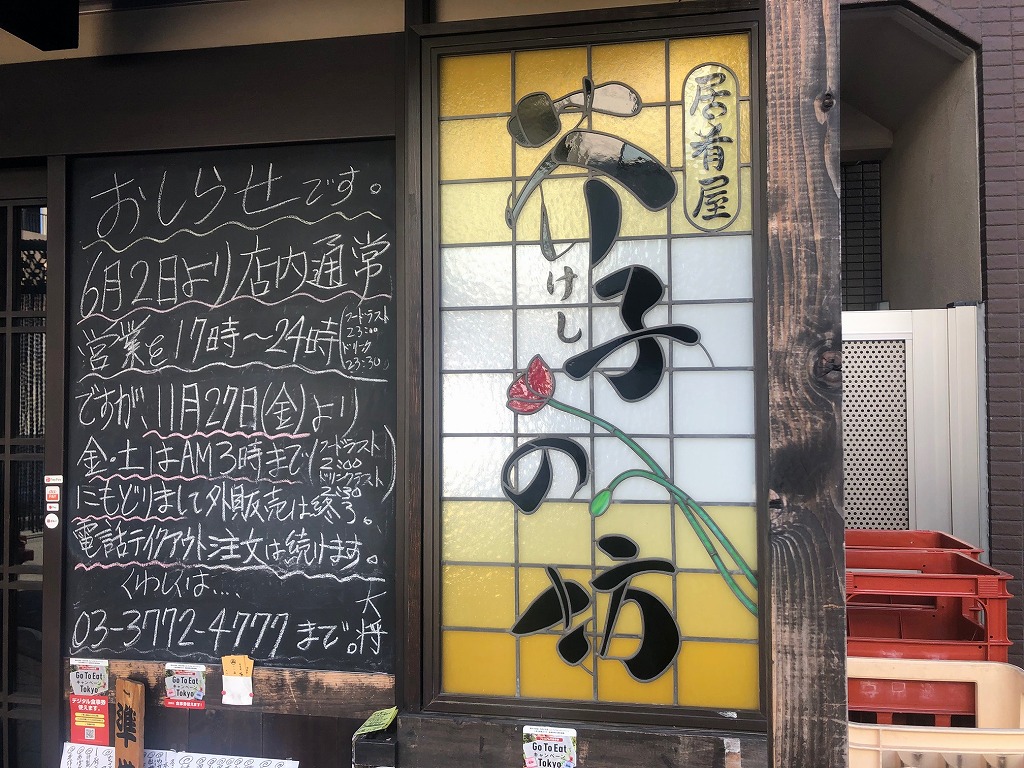 おしらせです。
6月2日より店内通常
営業を17時〜24時(フードラスト23:00 ドリンク23:30)
ですが11月27日(金)より
金・土はAM3時まで(フードラスト2:00 ドリンクラスト2:30)
にもどりまして外販売は終了。
電話テイクアウト注文は続けます。
くわしくは....
03-3772-4777まで。大将
居肴屋
芥子の坊
けし
Go To Eat
キャンペーン
Tokyo
デジタル食事券
使えます。
Go To Eat
キャンペーン
Tokyo
準
Go To Eat
キャンペーン
Tokyo